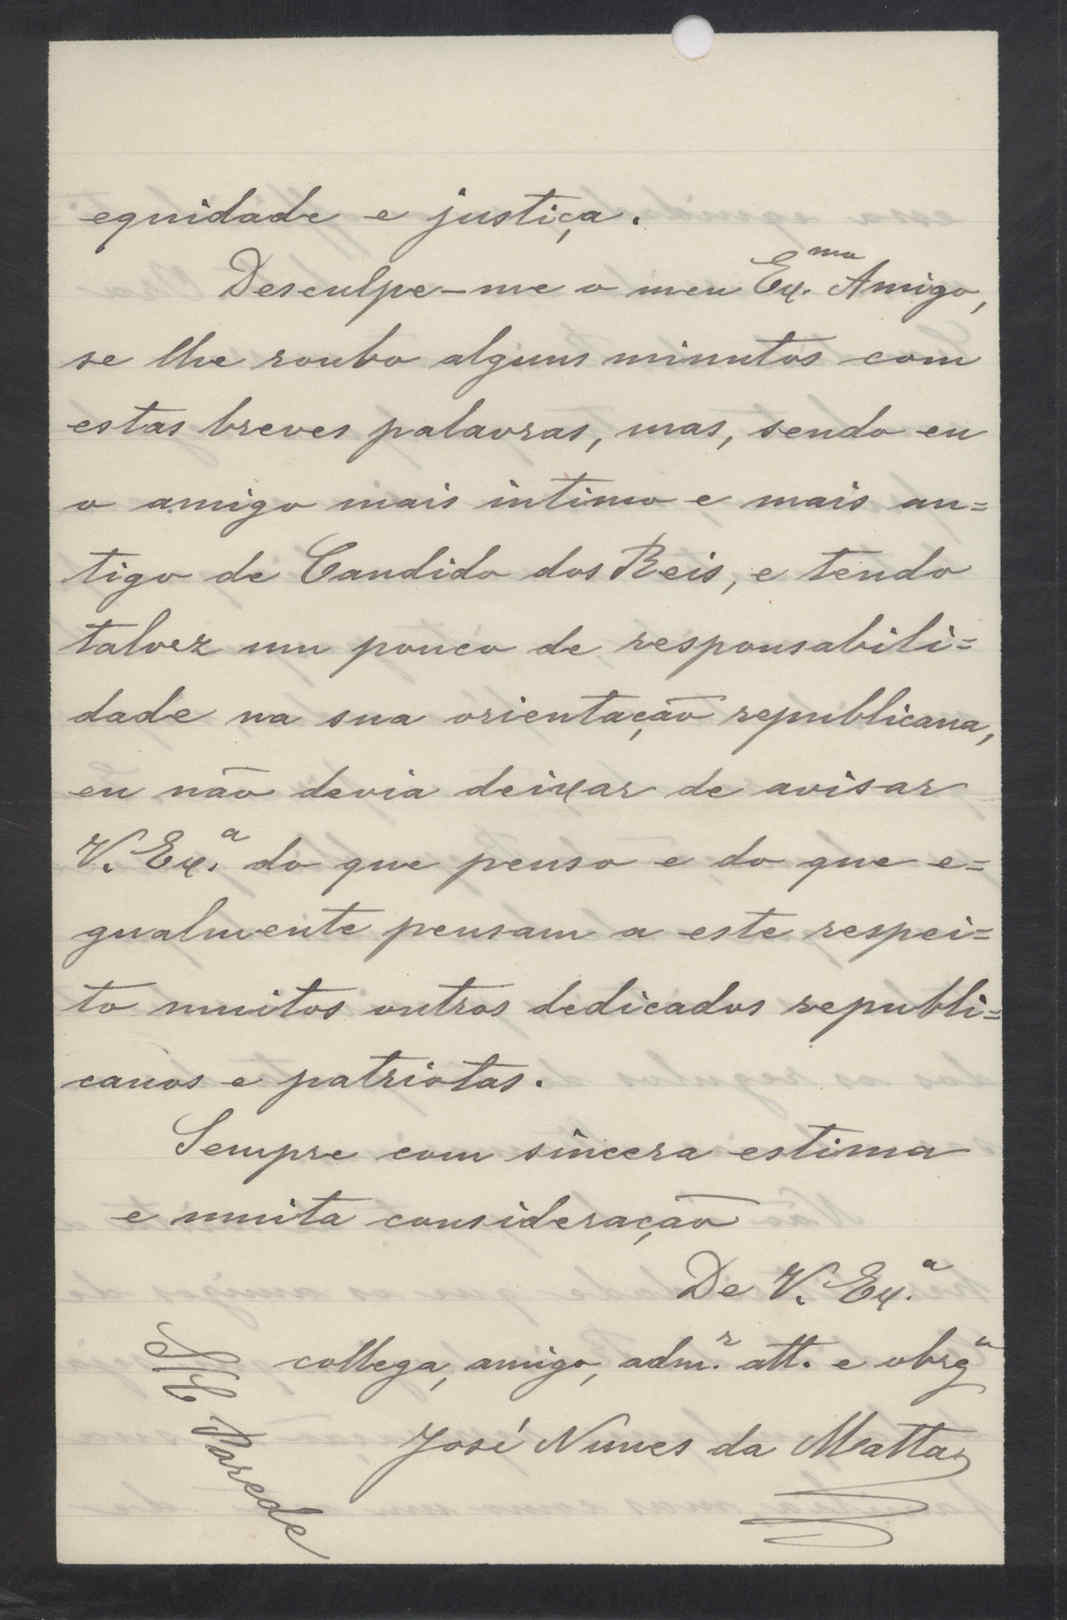 equidade e justiça.
Desculpe-me o meu Ex.mo Amigo,
se lhe roubo alguns minutos com
estas breves palavras, mas, sendo eu
o amigo mais intimo e mais an=
tigo de Candido dos Reis, e tendo
talvez um pouco de responsabili=
dade na sua orientação republicana,
eu não devia deixar de avisar
V. Ex.a do que penso e do que e=
gualmente pensam a este respei=
to muitos outros dedicados republi=
canos e patriotas.
Sempre com sincera estima
e muita consideração
De V. Ex.a
collega, amigo, adm.r att. e obrg.o
José Nunes da Matta
S/C Parede